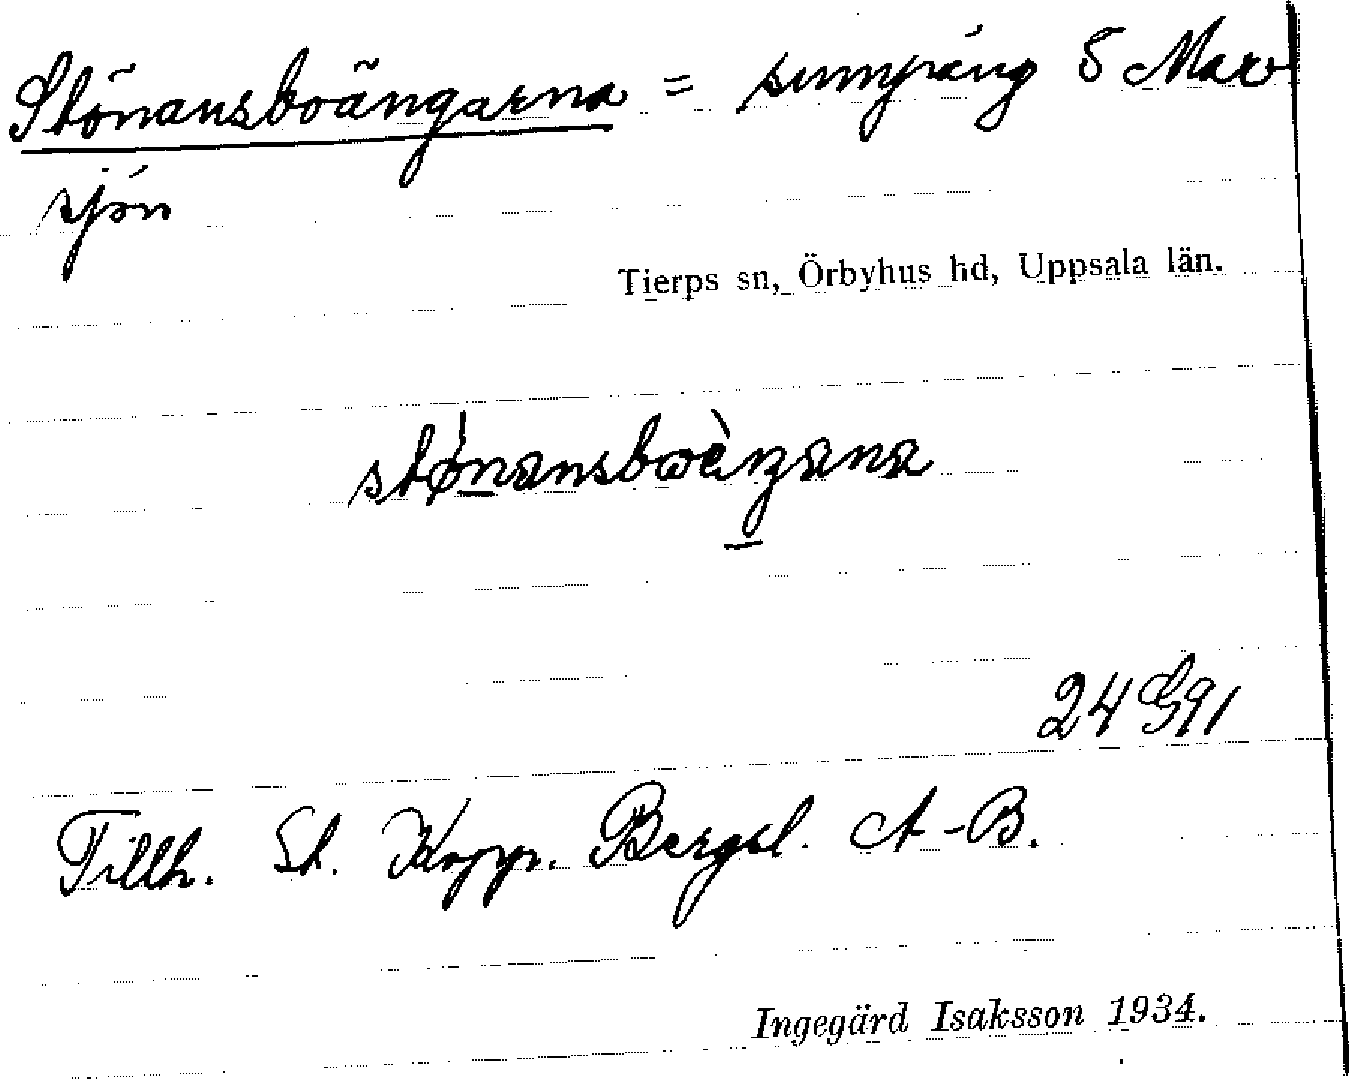 Stönansboängarna = sumpäng S Mar
sjön
Tierps sn, Örbyhus hd, Uppsala län.
24 G 91
Tillh. St. Kopp. Bergsl. A-B.
Ingegärd Isaksson 1934.